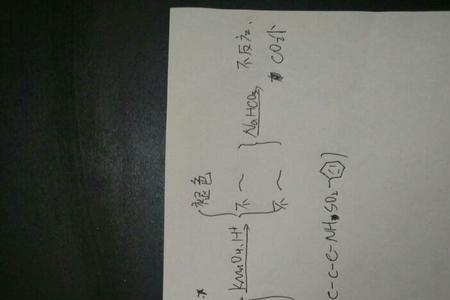 不反应
NaHCO₃ CO₂↑
褪色
KMnO₄, H⁺
不~
不~
C-C-C-NH SO₂-